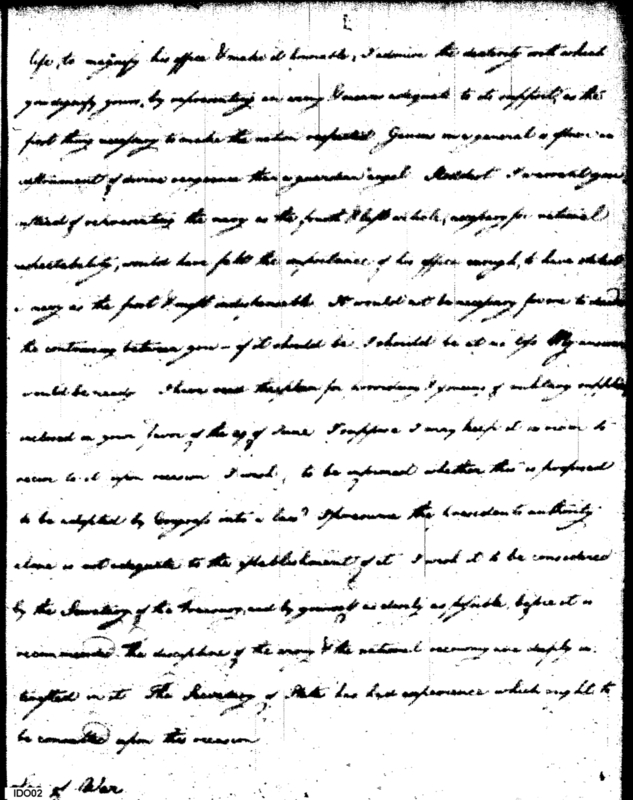 life, to magnify his office & make it honorable, I admire the dexterity with which
you dignify yours, by representing an army & means adequate to its support, as the
first thing necessary to make the nation respected. Genius in a general is oftener an
instrument of divine vengeance than a guardian angel. Stoddert I warrant you
instead of representing the navy as the fourth & last article, necessary for national
respectability, would have felt the importance of his office enough, to have stated
a navy as the first & most indispensable. It would not be necessary for me to decide
the controversy between you – if it should be I should be at no loss My answer
would be ready I have read the plan for of military supplies
inclosed in your favor of the 29 of June I suppose I may keep it in order to
recur to it upon occasion I wish, to be informed whether this is proposed
to be adopted by Congress into a law? I presume the presidents authority
alone is not adequate to the establishment of it I wish it to be considered
by the Secretary of the Treasury, and by yourself as closely as possible, before it is
recommended. The discipline of the army & the national oeconomy are deeply in
in it The Secretary of State has had experience which ought to
be consulted upon this occasion
of War
IDO02